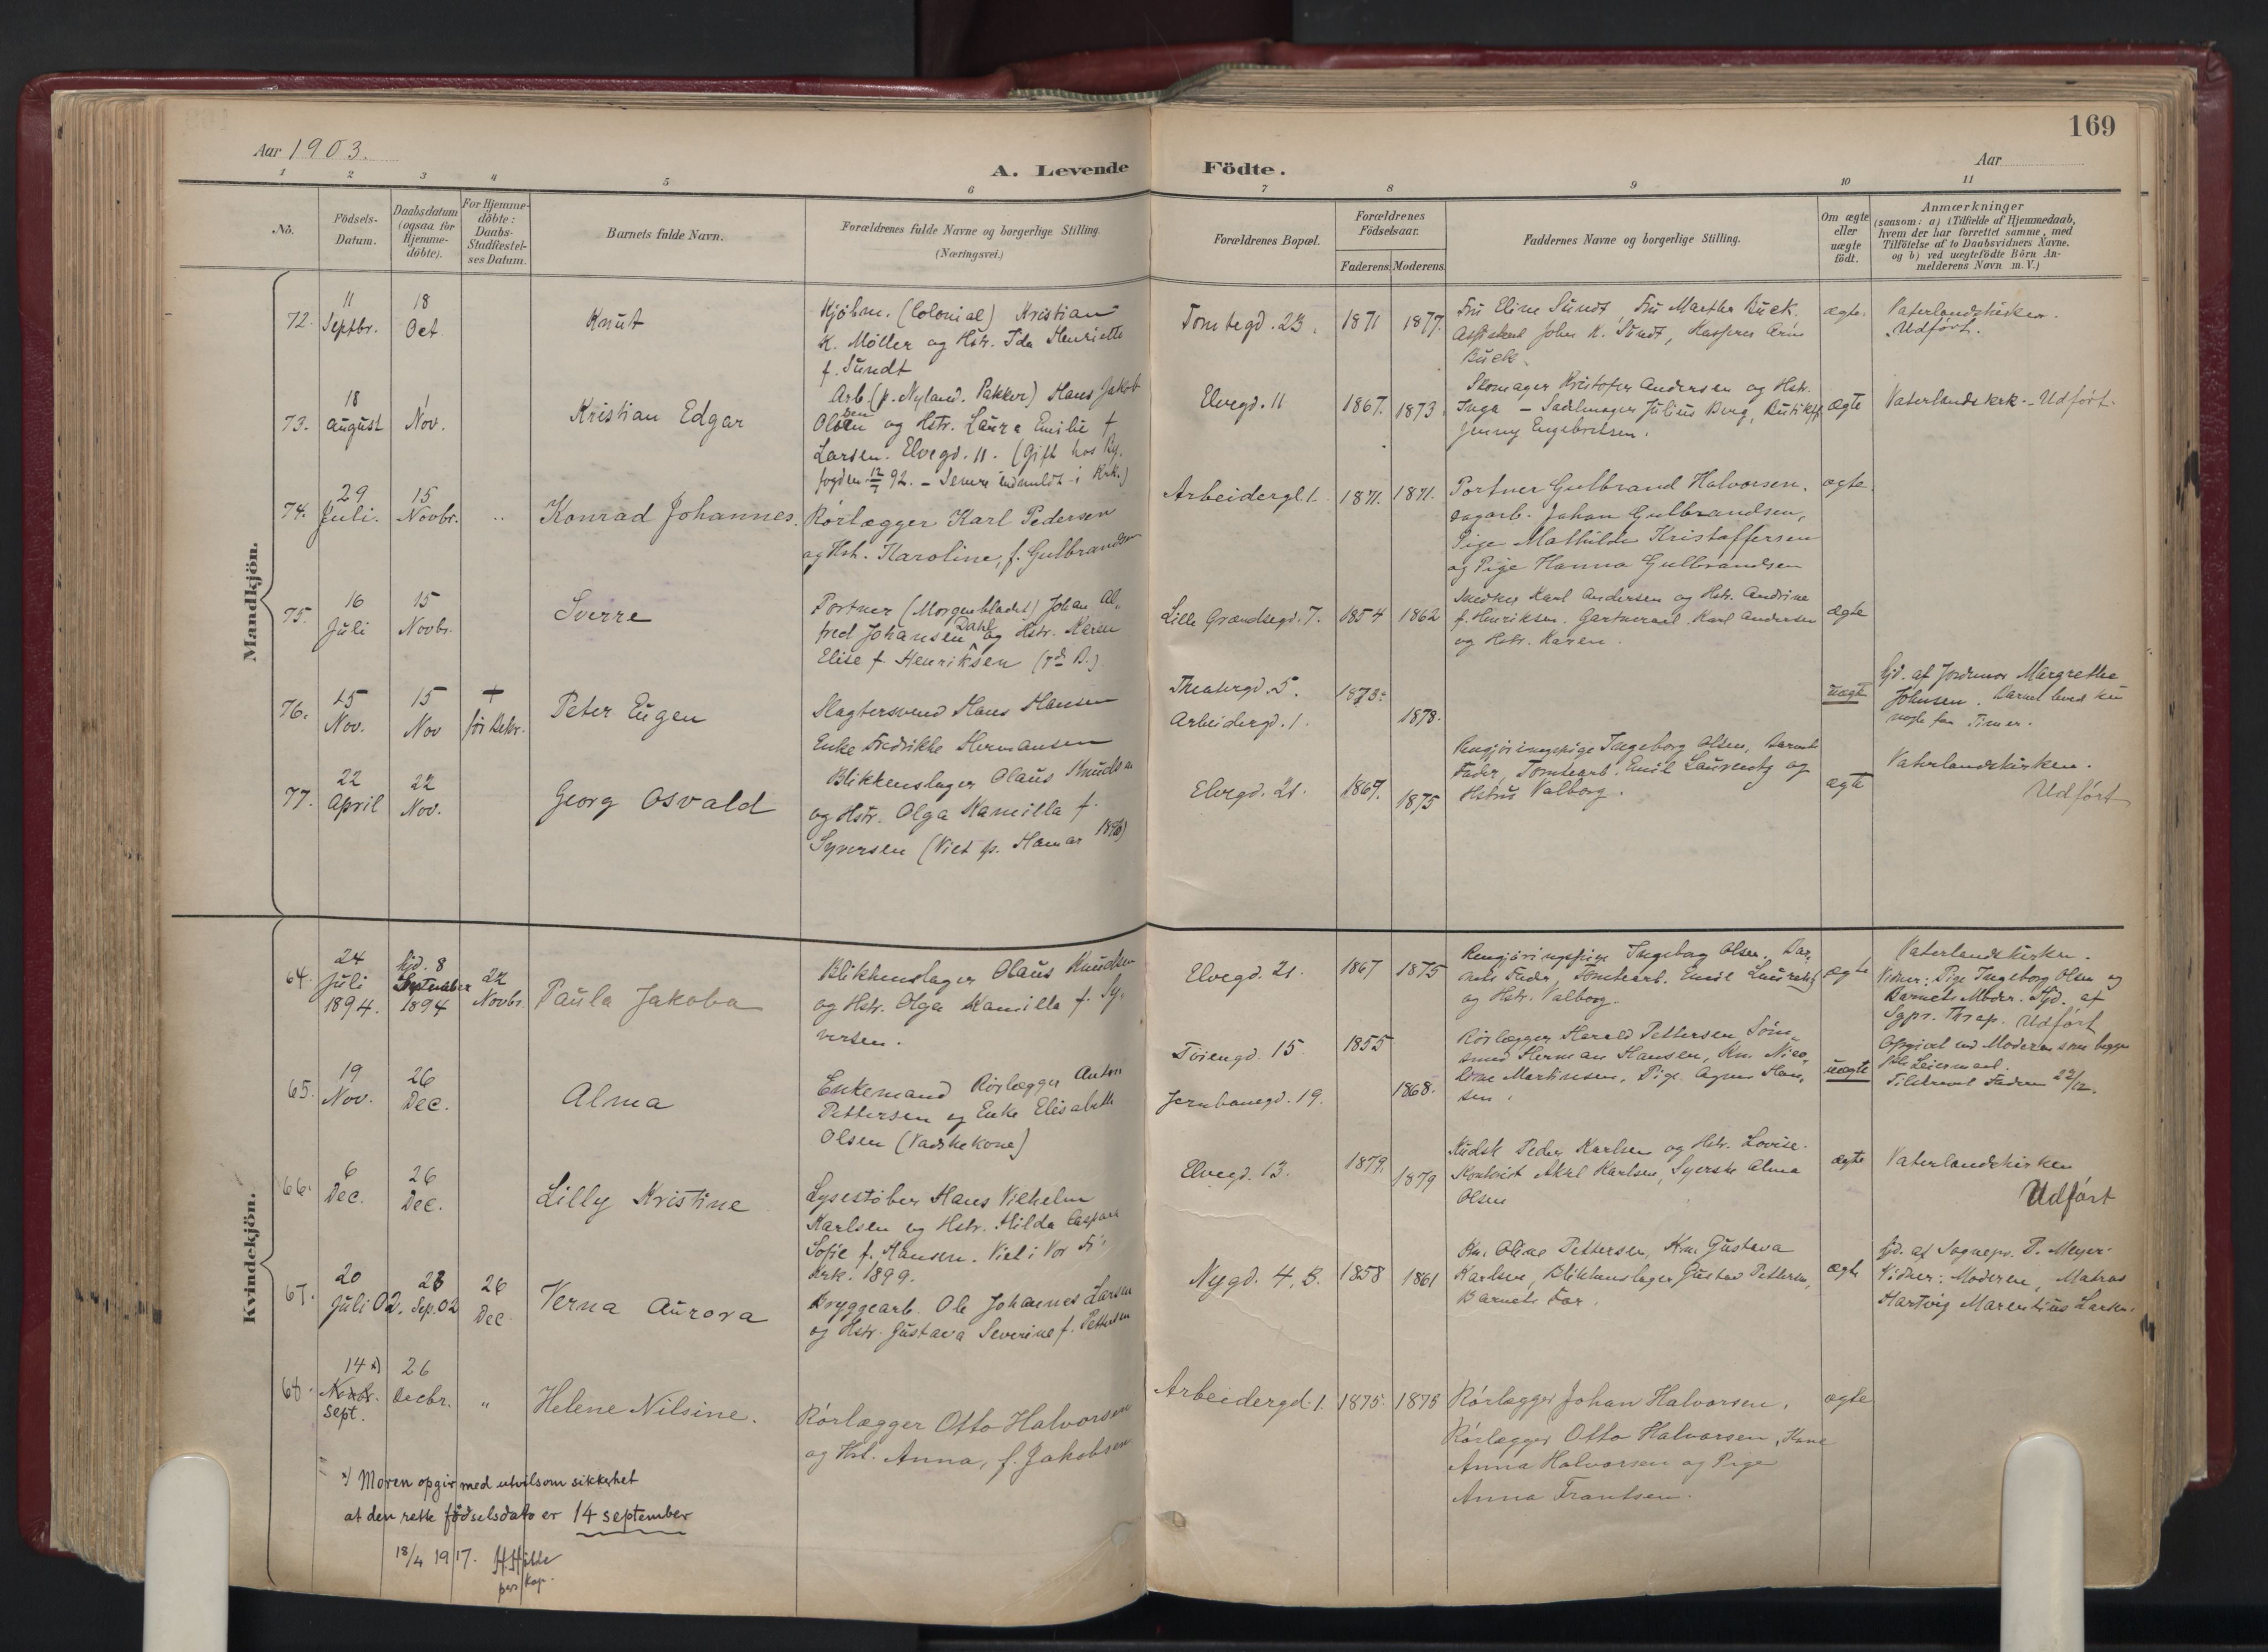 169
Aar 1903.
A. Levende Födte.
Aar
1 2 3 4 5 6 7 8 9 10 11
No.
Födsels-Datum.
Daabsdatum (ogsaa for Hjemme-döbte).
For Hjemme-döbte: Daabs-Stadfæstel-ses Datum.
Barnets fulde Navn.
Forældrenes fulde Navne og borgerlige Stilling.
(Næringsvei.)
Forældrenes Bopæl.
Forældrenes Födselsaar.
Faderens. Moderens.
Faddernes Navne og borgerlige Stilling.
Om ægte eller uægte födt.
Anmærkninger
(saasom: a) i Tilfælde af Hjemmedaab,
hvem der har forrettet samme, med
Tilföielse af to Daabsvidners Navne.
og b) ved uægtefödte Börn An-
melderens Navn m.V.)
Mandkjön.
72. 11 Septbr. 18 Oct. Knut
Kjöbm. (Colonial) Kristian
K. Möller og Hstr. Ida Henriette
f. Sundt
Tomtegd. 23. 1871 1877.
Fru Eline Sundt, Fru Marthe Buck.
Assistent John K. Sundt, Kasserer Arn
Buck
ægte.
Vaterlandskirken.
Udført.
73. 18 august 1 Nov. Kristian Edgar
Arb. (p. Nyland. Pakker) Hans Jakob
Olsen og Hstr. Laura Emilie f.
Larsen. Elvegd. 11. (Gift hos By-
fogden 12/7 92. – Senere indmeldt i Krk.)
Elvegd. 11 1867. 1873.
Skomager Kristofer Andersen og Hstr.
Inga – Sadelmager Julius Berg, Butikfr
Jenny Engebretsen.
ægte
Vaterlands krk. – Udført.
74. 29 Juli. 15 Novbr. " Konrad Johannes.
Rørlægger Karl Pedersen
og Hst. Karoline, f. Gulbrandsen
Arbeidergd. 1. 1871. 1871.
Portner Gulbrand Halvorsen.
Dagarb. Johan Gulbrandsen,
Pige Mathilde Kristoffersen
og Pige Hanna Gulbrandsen
ægte.
75. 16 Juli 15 Novbr. Sverre
Portner (Morgenbladet) Johan Al-
fred Johansen Dahl og Hstr. Karen
Elise f. Henriksen (7de B.)
Lille Grændsegd. 7. 1854 1862
Snedker Karl Andersen og Hstr. Andrine
f. Henriksen. Gartnerarb. Karl Andersen
og Hstr. Karen.
ægte
76. 15 Nov. 15 Nov † før Bekr. Peter Eugen
Slagtersvend Hans Hansen
Enke Fredrikke Hermansen
Theatergd. 5. 1873.
Arbeidergd. 1. 1878.
uægte
Hjd. af Jordmor Margrethe
Johnsen. Barnet leved kun
nogle faa Timer.
77. 22 April 22 Nov. Georg Osvald
Blikkenslager Olaus Knudsen
og Hstr. Olga Kamilla f.
Syversen (Viet p. Hamar 1896)
Elvegd. 21. 1867. 1875
Rengjöringspige Ingeborg Olsen, Barnets
Fader, Tomtearb. Emil Laurentz og
Hstru Valborg.
ægte
Vaterlandskirken.
Udført
Kvindekjön.
64. 24 Juli 1894. Hjd. 8 September 1894 22 Novbr. Paula Jakoba
Blikkenslager Olaus Knudsen
og Hstr. Olga Kamilla f. Sy-
versen.
Elvegd. 21. 1867 1875
Rengjöringspige Ingeborg Olsen, Bar-
nets Fader, Tomtearb. Emil Laurentz
og Hstr. Valborg.
ægte
Vaterlandskirken.
Vidner: Pige Ingeborg Olsen og
Barnets Moder. Hjd. af
Sgpr. Thrap. Udført
65. 19 Nov. 26 Dec. Alma
Enkemand Rörlægger Anton
Pettersen og Enke Elisabeth
Olsen (Vaskekone)
Töiengd. 15. 1855
Jernbanegd. 19. 1868.
Rörlægger Harald Pettersen
Herman Hansen, Kn. Nico-
line Martinsen, Pige Agnes Han-
sen.
uægte
Opgivet ved Moderen som begges
1ste Leiermaal.
Tilskrevet Faderen 22/12.
66. 6 Dec. 26 Dec. Lilly Kristine
Lysestöber Hans Vilhelm
Karlsen og Hstr. Hilda Caspara
Sofie f. Hansen. Viet i Vor Fr.
krk. 1899.
Elvegd. 13. 1879. 1879
Kudsk Peder Karlsen og Hstr. Lovise.
Axel Karlsen, Syerske Alma
Olsen
ægte
Vaterlandskirken
Udført
67. 20 Juli 02. 28 Sep. 02 26 Dec. Verna Aurora
Bryggearb. Ole Johannes Larsen
og Hstr. Gustava Severine f. Pettersen
Nygd. 4, B. 1858 1861
Kn. Oline Pettersen, Kn. Gustava
Karlsen, Blikkenslager Gustav Pettersen,
Barnets Far.
ægte
Hjd. af Sognepr. P. Meyer.
Vidner: Moderen, Matros
Hartvig Marentius Larsen.
68. 14 x) Novbr. Sept. 26 Decbr. " Helene Nilsine.
Rörlægger Otto Halvorsen
og Hst. Anna, f. Jakobsen
Arbeidergd. 1. 1875. 1875
Rörlægger Johan Halvorsen,
Rörlægger Otto Halvorsen, Kone
Anna Halvorsen og Pige
Anna Frantsen.
ægte
x) Moren opgir med utvilsom sikkerhet
at den rette födselsdato er 14 september
18/4 1917.
pers. kap.